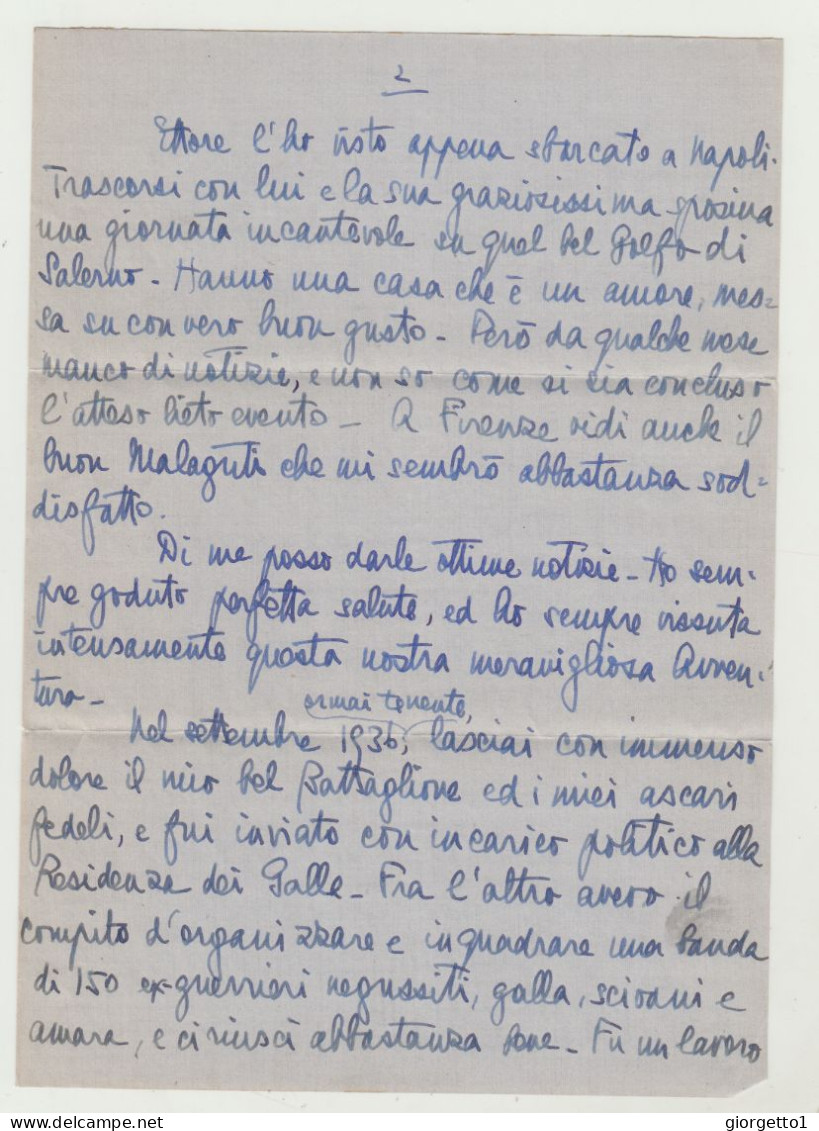 2
Ettore l'ho visto appena sbarcato a Napoli.
Trascorsi con lui e la sua graziosissima sposina
una giornata incantevole su quel bel Golfo di
Salerno - Hanno una casa che è un amore, mes=
sa su con vero buon gusto - Però da qualche mese
manco di notizie, e non so come si sia concluso
l'atteso lieto evento - A Firenze vidi anche il
buon Malaguti che mi sembrò abbastanza sod=
disfatto.
Di me posso darle ottime notizie - Ho sem=
pre goduto perfetta salute, ed ho sempre vissuta
intensamente questa nostra meravigliosa Avven=
tura -
ormai tenente,
Nel settembre 1936, lasciai con immenso
dolore il mio bel Battaglione ed i miei ascari
fedeli, e fui inviato con incarico politico alla
Residenza dei Galla - Fra l'altro avevo il
compito d'organizzare e inquadrare una banda
di 150 ex-guerrieri negussiti, galla, scioani e
amara, e ci riuscì abbastanza bene - Fù un lavoro
delcampe.net
giorgetto1